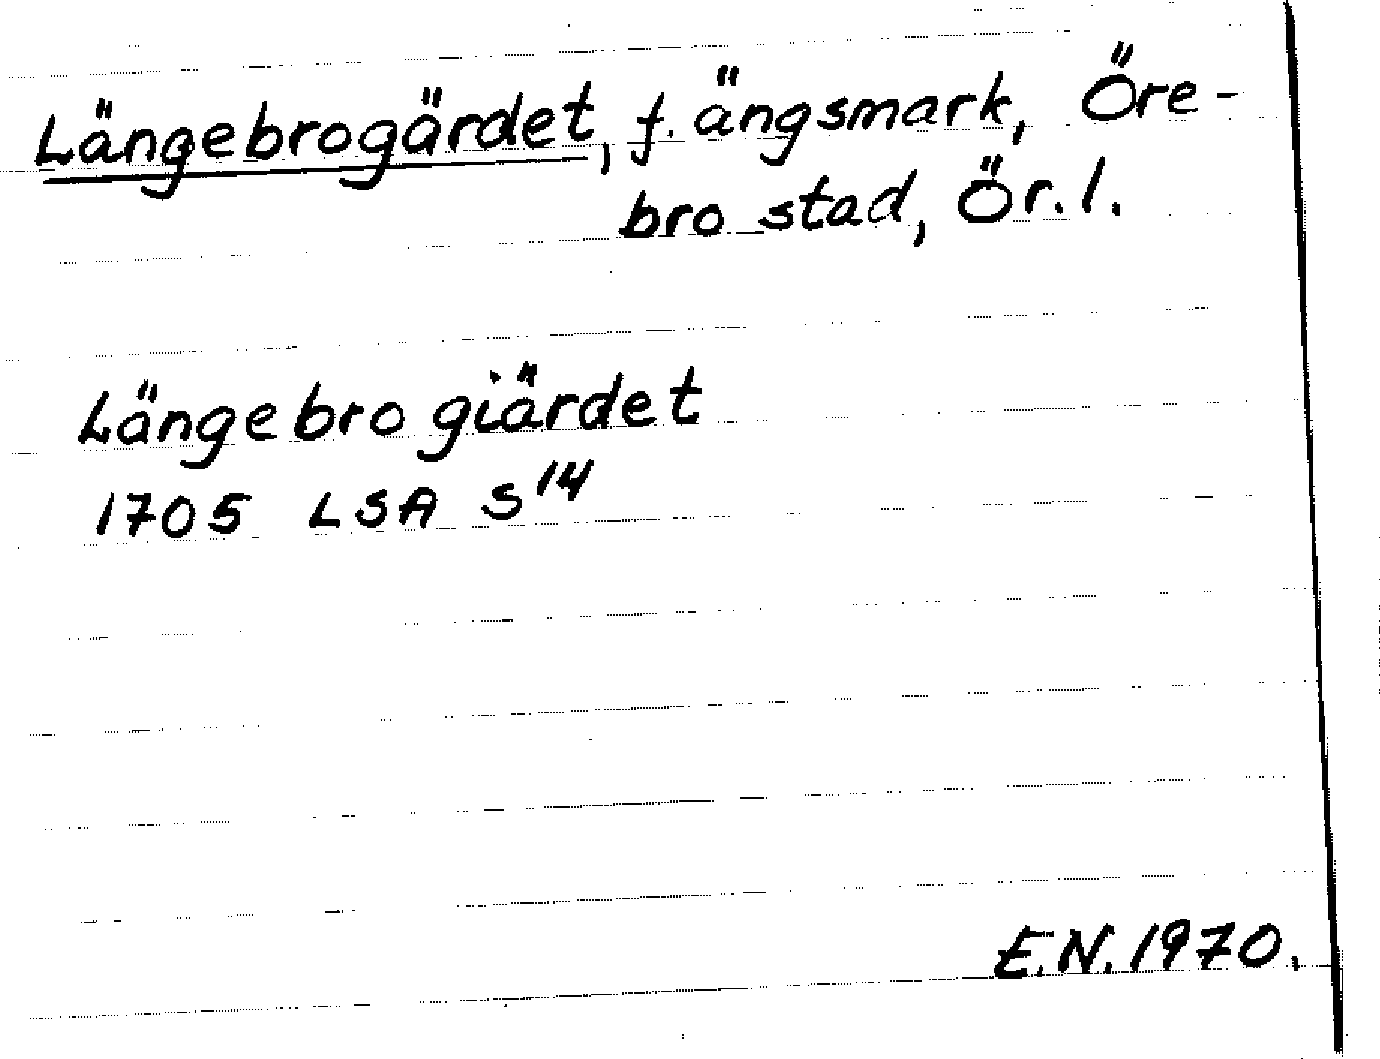 Längebrogärdet, f. ängsmark, Öre-
bro stad, Ör. l.
Längebro giärdet
1705 LSA S14
E.N. 1970.